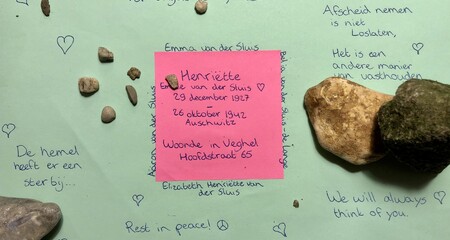 Afscheid nemen
is niet
Loslaten,
Het is een
andere manier
van vasthouden
Emma van der Sluis
Henriëtte
Emmie van der Sluis ♡
29 december 1927
-
26 oktober 1942
Auschwitz
Woonde in Veghel
Hoofdstraat 65
Aaron van der Sluis
van der Sluis de Lange
Elizabeth Henriëtte van
der Sluis
De hemel
heeft er een
ster bij...
We will always
think of you.
Rest in peace!